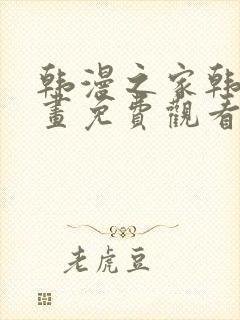 韩漫之家韩
畫免費觀看
老虎豆